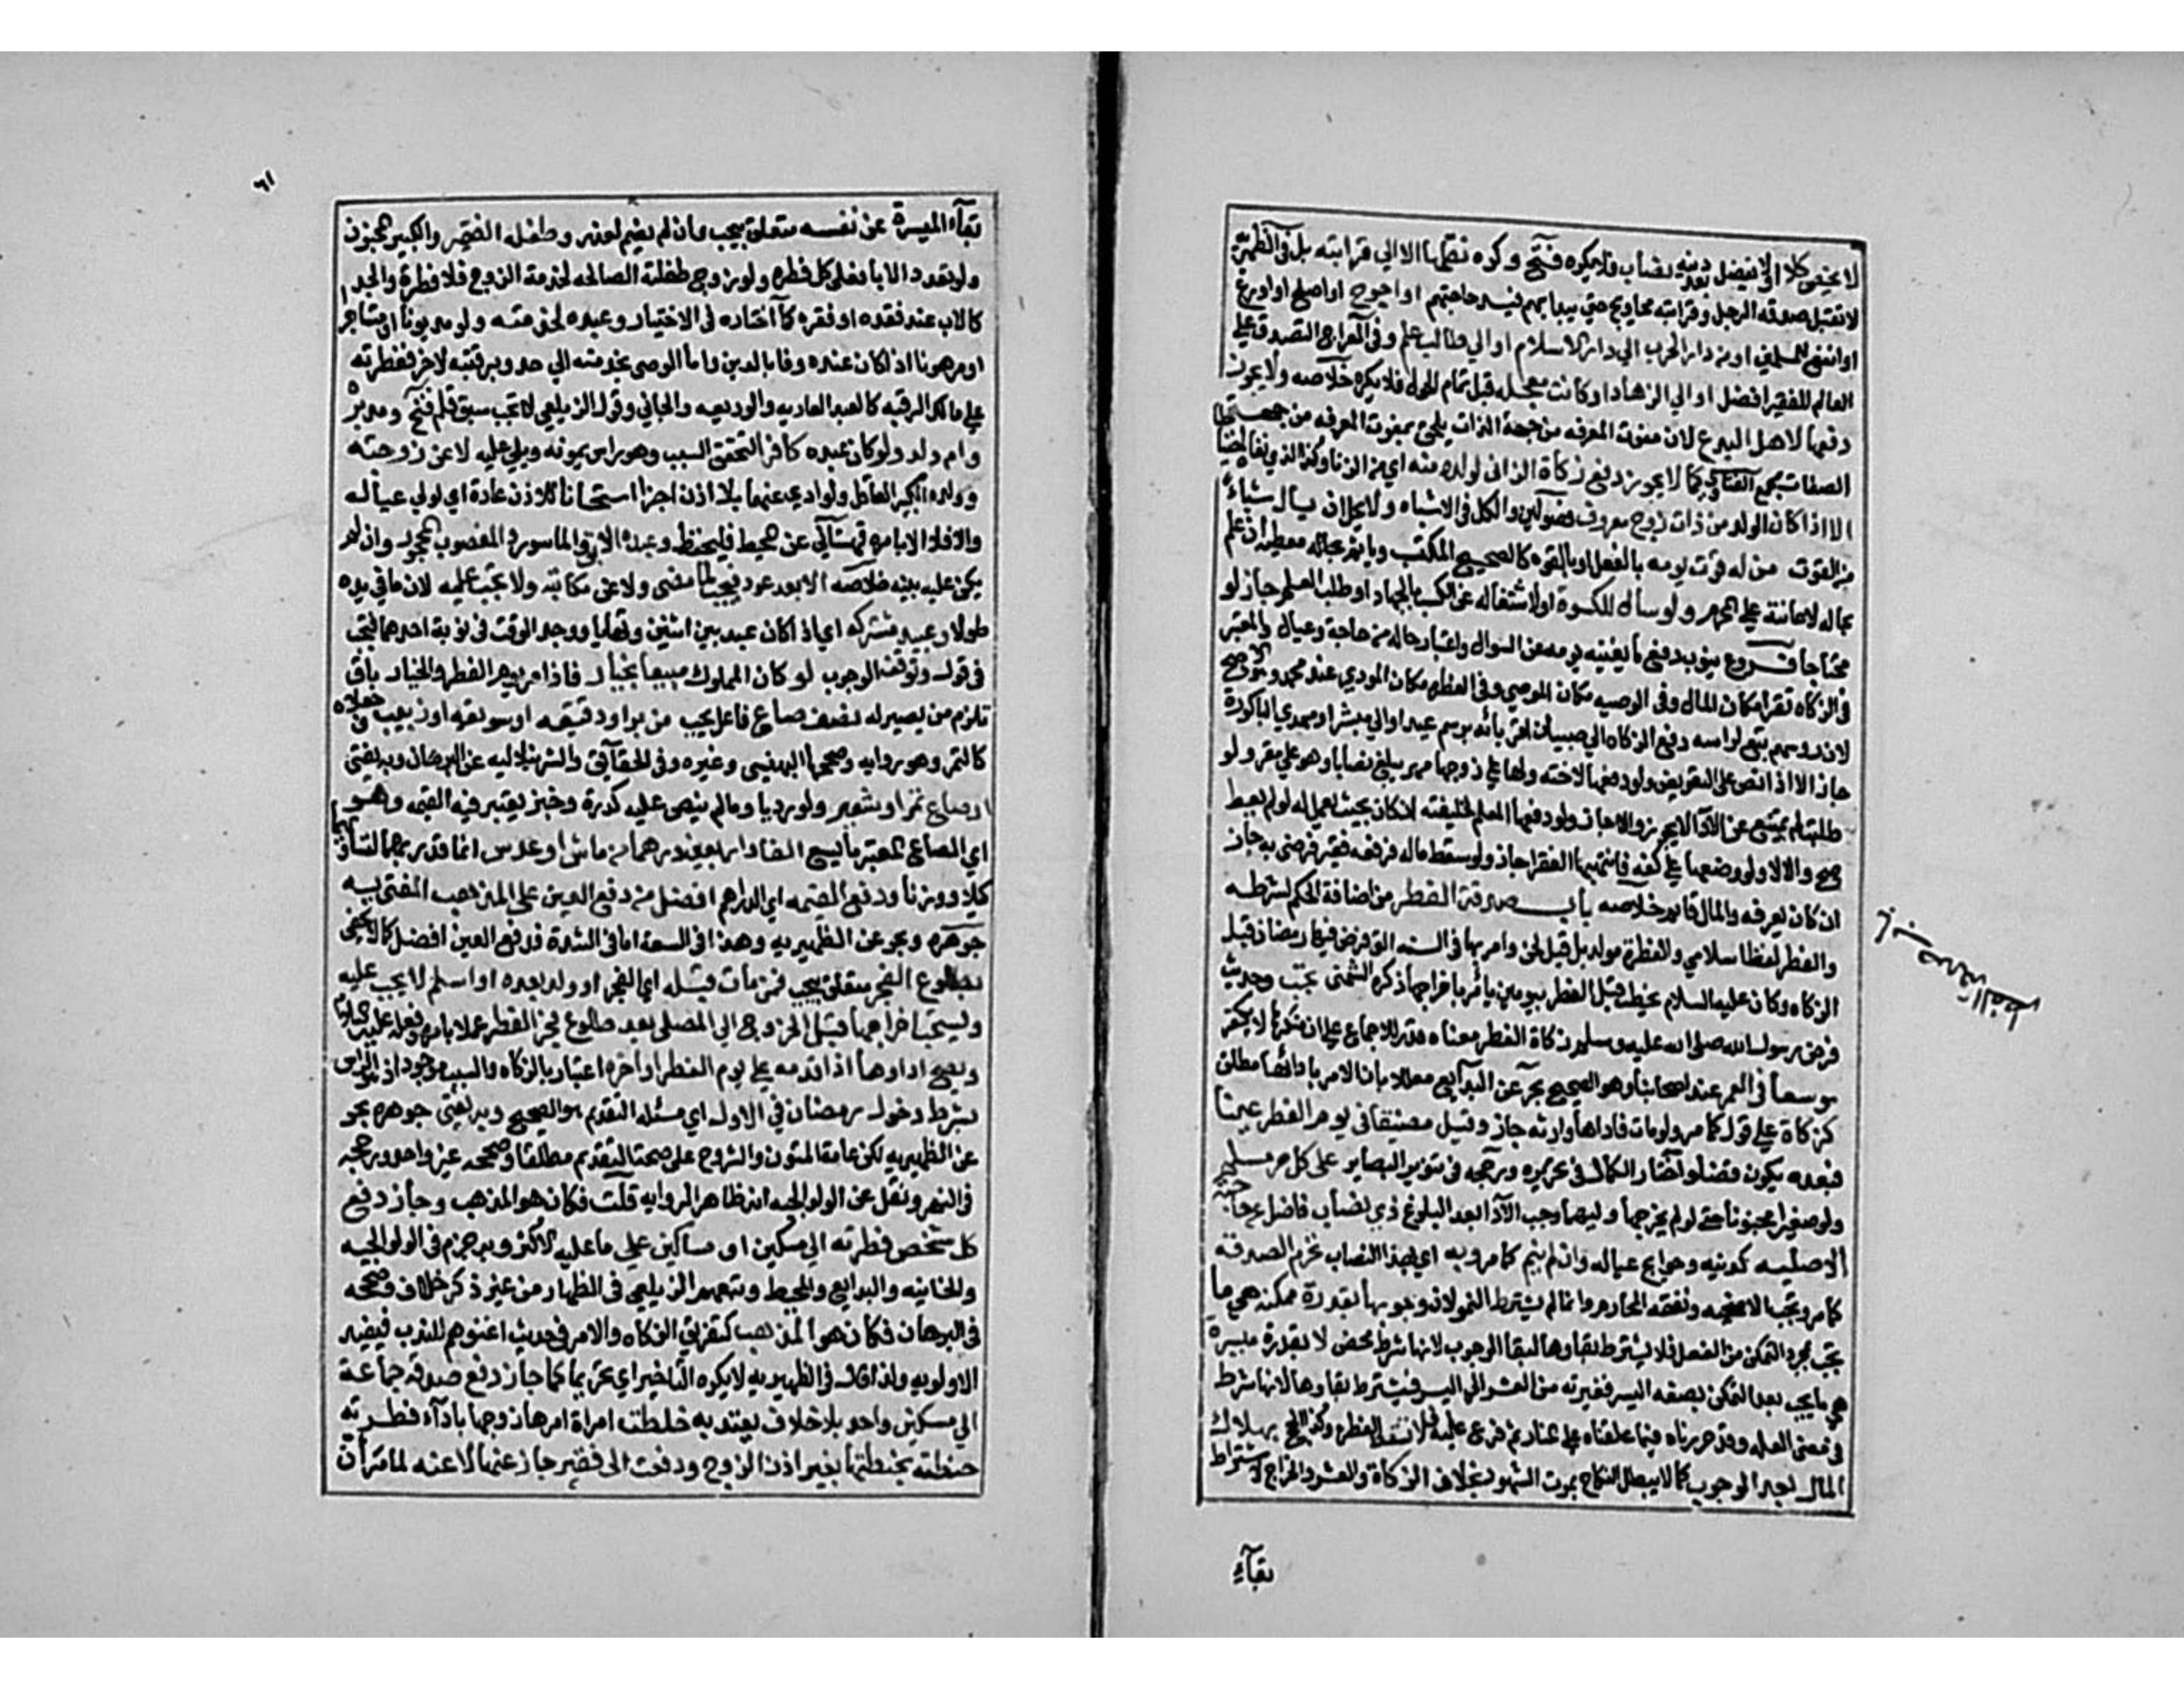 لا يخص كلا او لا يفضل بعد دينه نصاب فلا يكره فتح وكره نقلها الا الى قرابته بل في الظهيرية
لا تقبل صدقه الرجل وقرابته محاويج حتى يبدا بهم فيسد حاجتهم او احوج او اصلح او اورع
او انفع للمسلمين او من دار الحرب الي دار الاسلام او الي طالب علم وفي المعراج التصدق على
العالم الفقير افضل او الي الزهاد او كانت معجله قبل تمام الحول فلا يكره خلاصه ولا يجوز
دفعها لاهل البدع لان مفوت المعرفه من جهة الذات يلحق بمفوت المعرفه من جهة
الصفات مجمع الفتاوي كما لا يجوز دفع زكاة الزاني لولده منه اي من الزنا وكذا الذي نفاه
الا اذا كان الولد من ذات زوج معروف فصولين والكل في الاشباه ولا يحل ان يسال شياء
من القوت من له قوت يومه بالفعل او بالقوه كالصحيح المكتسب وياثم معطيه ان علم
بحاله لاعانته على المحرم ولو سال للكسوة او لاشتغاله عن الكسب بالجهاد او طلب العلم جاز لو
محتاجا فروع يندب دفع ما يغنيه يومه عن السوال واعتبار حاله من حاجة وعيال والمعتبر
في الزكاه فقرا مكان المال وفي الوصيه مكان الموصي وفي الفطره مكان المودي عند محمد وهو الاصح
لان روسهم تبع لراسه دفع الزكاه الي صبيان اقربائه برسم عيد او الي مبشر او مهدي الباكورة
جاز الا اذا نص على التعويض ولو دفعها لاخته ولها على زوجها مهر يبلغ نصابا وهو ملي مقر ولو
طلبت لم يمتنع عن الادا لا يجوز والا جاز ولو دفعها المعلم لخليفته ان كان بحيث يعمل له لو لم يعط
صح والا لا ولو وضعها على كفه فانتهبها الفقرا جاز ولو سقط مال فرفعه فقير فرضي به جاز
ان كان يعرفه والمال قايم خلاصه باب صدقة الفطر من اضافة الحكم لشرطه
والفطر لفظ اسلامي والفطرة مولد بل قيل لحن وامر بها في السنه التي فرض فيها رمضان قبل
الزكاه وكان عليه السلام يخطب قبل الفطر بيومين يامر باخراجها ذكره الشمني تجب وحديث
فرض رسول الله صلى الله عليه وسلم زكاة الفطر معناه قدر للاجماع على ان منكرها لا يكفر
موسعا في العمر عند اصحابنا وهو الصحيح بحر عن البدايع معللا بان الامر بادائها مطلق
كزكاة على قول كما مر ولو مات فاداها وارثه جاز وقيل مضيقا في يوم الفطر عينا
فبعده يكون قضا واختاره الكمال في تحريره ورجحه في تنوير البصاير على كل حر مسلم
ولو صغيرا مجنونا حتى لو لم يخرجها وليهما وجب الادا بعد البلوغ ذي نصاب فاضل عن حاجته
الاصليه كدينه وحوايج عياله وان لم ينم كما مر وبه اي بهذا النصاب تحرم الصدقة
كما مر وتجب الاضحيه ونفقه المحارم وانما لم يشترط النمو لان وجوبها بقدرة ممكنه هي ما
تجب بمجرد التمكن من الفعل فلا يشترط بقاوها لبقا الوجوب لانها شرط محض لا بقدرة ميسرة
هي ما يجب بعد التمكن بصفه اليسر فغيرته من العسر الى اليسر فيشترط بقاوها لانها شرط
في معنى العله وقد حررناه فيما علقناه على المنار ثم فرع عليه فلا تسقط الفطره وكذا الحج بهلاك
المال بعد الوجوب كما لا يبطل النكاح بموت الشهود بخلاف الزكاة والعشر والخراج لاشتراط
بقاء
باب صدقة الفطر
٦١
بقاء الميسرة عن نفسه متعلق بيجب وان لم يصم لعذر وطفله الفقير والكبير المجنون
ولو تعدد الابا فعلى كل فطره ولو زوج طفلته الصالحه لخدمة الزوج فلا فطرة والجد
كالاب عند فقده او فقره كما اختاره في الاختيار وعبده لخدمته ولو مديونا او مستاجرا
او مرهونا اذا كان عنده وفا بالدين واما الموصى بخدمته الي حد وبرقبته لاخر ففطرته
على مالك الرقبه كالعبد العاديه والوديعه والجاني وقول الزيلعي لا تجب سبق قلم فتح ومدبره
وام ولده ولو كان عبده كافرا لتحقق السبب وهو راس يمونه ويلي عليه لا عن زوجته
وولده الكبير العاقل ولو ادى عنهما بلا اذن اجزا استحسانا للاذن عادة اي لو في عياله
والا فلا قهستاني عن محيط فليحفظ وعبده الابق والماسور والمغصوب المجحود وان لم
يكن عليه بينه خلاصه الا بعد عوده فيجب لما مضى ولا عن مكاتبه ولا تجب عليه لان ما في يده
لمولاه وعبيد مشتركه اي اذا كان عبد بين اثنين وتهايا ووجد الوقت في نوبة احدهما فتجب
في قول وتوقف الوجوب لو كان المملوك مبيعا بخيار فاذا مر يوم الفطر والخيار باق
تلزم من يصير له نصف صاع فاعل يجب من بر او دقيقه او سويقه او زبيب وجعلاه
كالتمر وهو روايه وصححها البهنسي وغيره وفي الحقائق والشرنبلاليه عن البرهان وبه يفتى
او صاع تمر او شعير ولو رديا وما لم ينص عليه كذرة وخبز يعتبر فيه القيمه وهو
اي الصاع المعتبر ما يسع الفا واربعين درهما من ماش او عدس انما قدر بهما لتساويهما
كيلا ووزنا ودفع القيمه اي الدراهم افضل من دفع العين على المذهب المفتى به
جوهره وبحر عن الظهيريه وهذا في السعة اما في الشدة فدفع العين افضل كما لا يخفى
بطلوع الفجر متعلق بيجب فمن مات قبله اي الفجر او ولد بعده او اسلم لا يجب عليه
ويستحب اخراجها قبل الخروج الي المصلى بعد طلوع فجر الفطر عملا بامره وفعله عليه السلام
وصح اداوها اذا قدمه على يوم الفطر او اخره اعتبارا بالزكاه والسبب موجود اذ هو الراس
بشرط دخول رمضان في الاول اي مسئله التقديم هو الصحيح وبه يفتى جوهره بحر
عن الظهيريه لكن عامة المتون والشروح على صحة التقديم مطلقا وصححه غير واحد ورجحه
في النهر ونقل عن الولوالجيه انه ظاهر الروايه قلت فكان هو المذهب وجاز دفع
كل شخص فطرته الي مسكين او مساكين على ما عليه الاكثر وبه جزم في الولوالجيه
والخانيه والبدايع والمحيط وتبعهم الزيلعي في الظهار من غير ذكر خلاف وصححه
في البرهان فكان هو المذهب كتفريق الزكاه والامر في حديث اغنوهم للندب فيفيد
الاولويه ولذا قال في الظهيريه لا يكره التاخير اي تحريما كما جاز دفع صدقة جماعة
الي مسكين واحد بلا خلاف يعتد به خلطت امراة امرها زوجها باداء فطرته
حنطته بحنطتها بغير اذن الزوج ودفعت الى فقير جاز عنها لا عنه لما مر ان